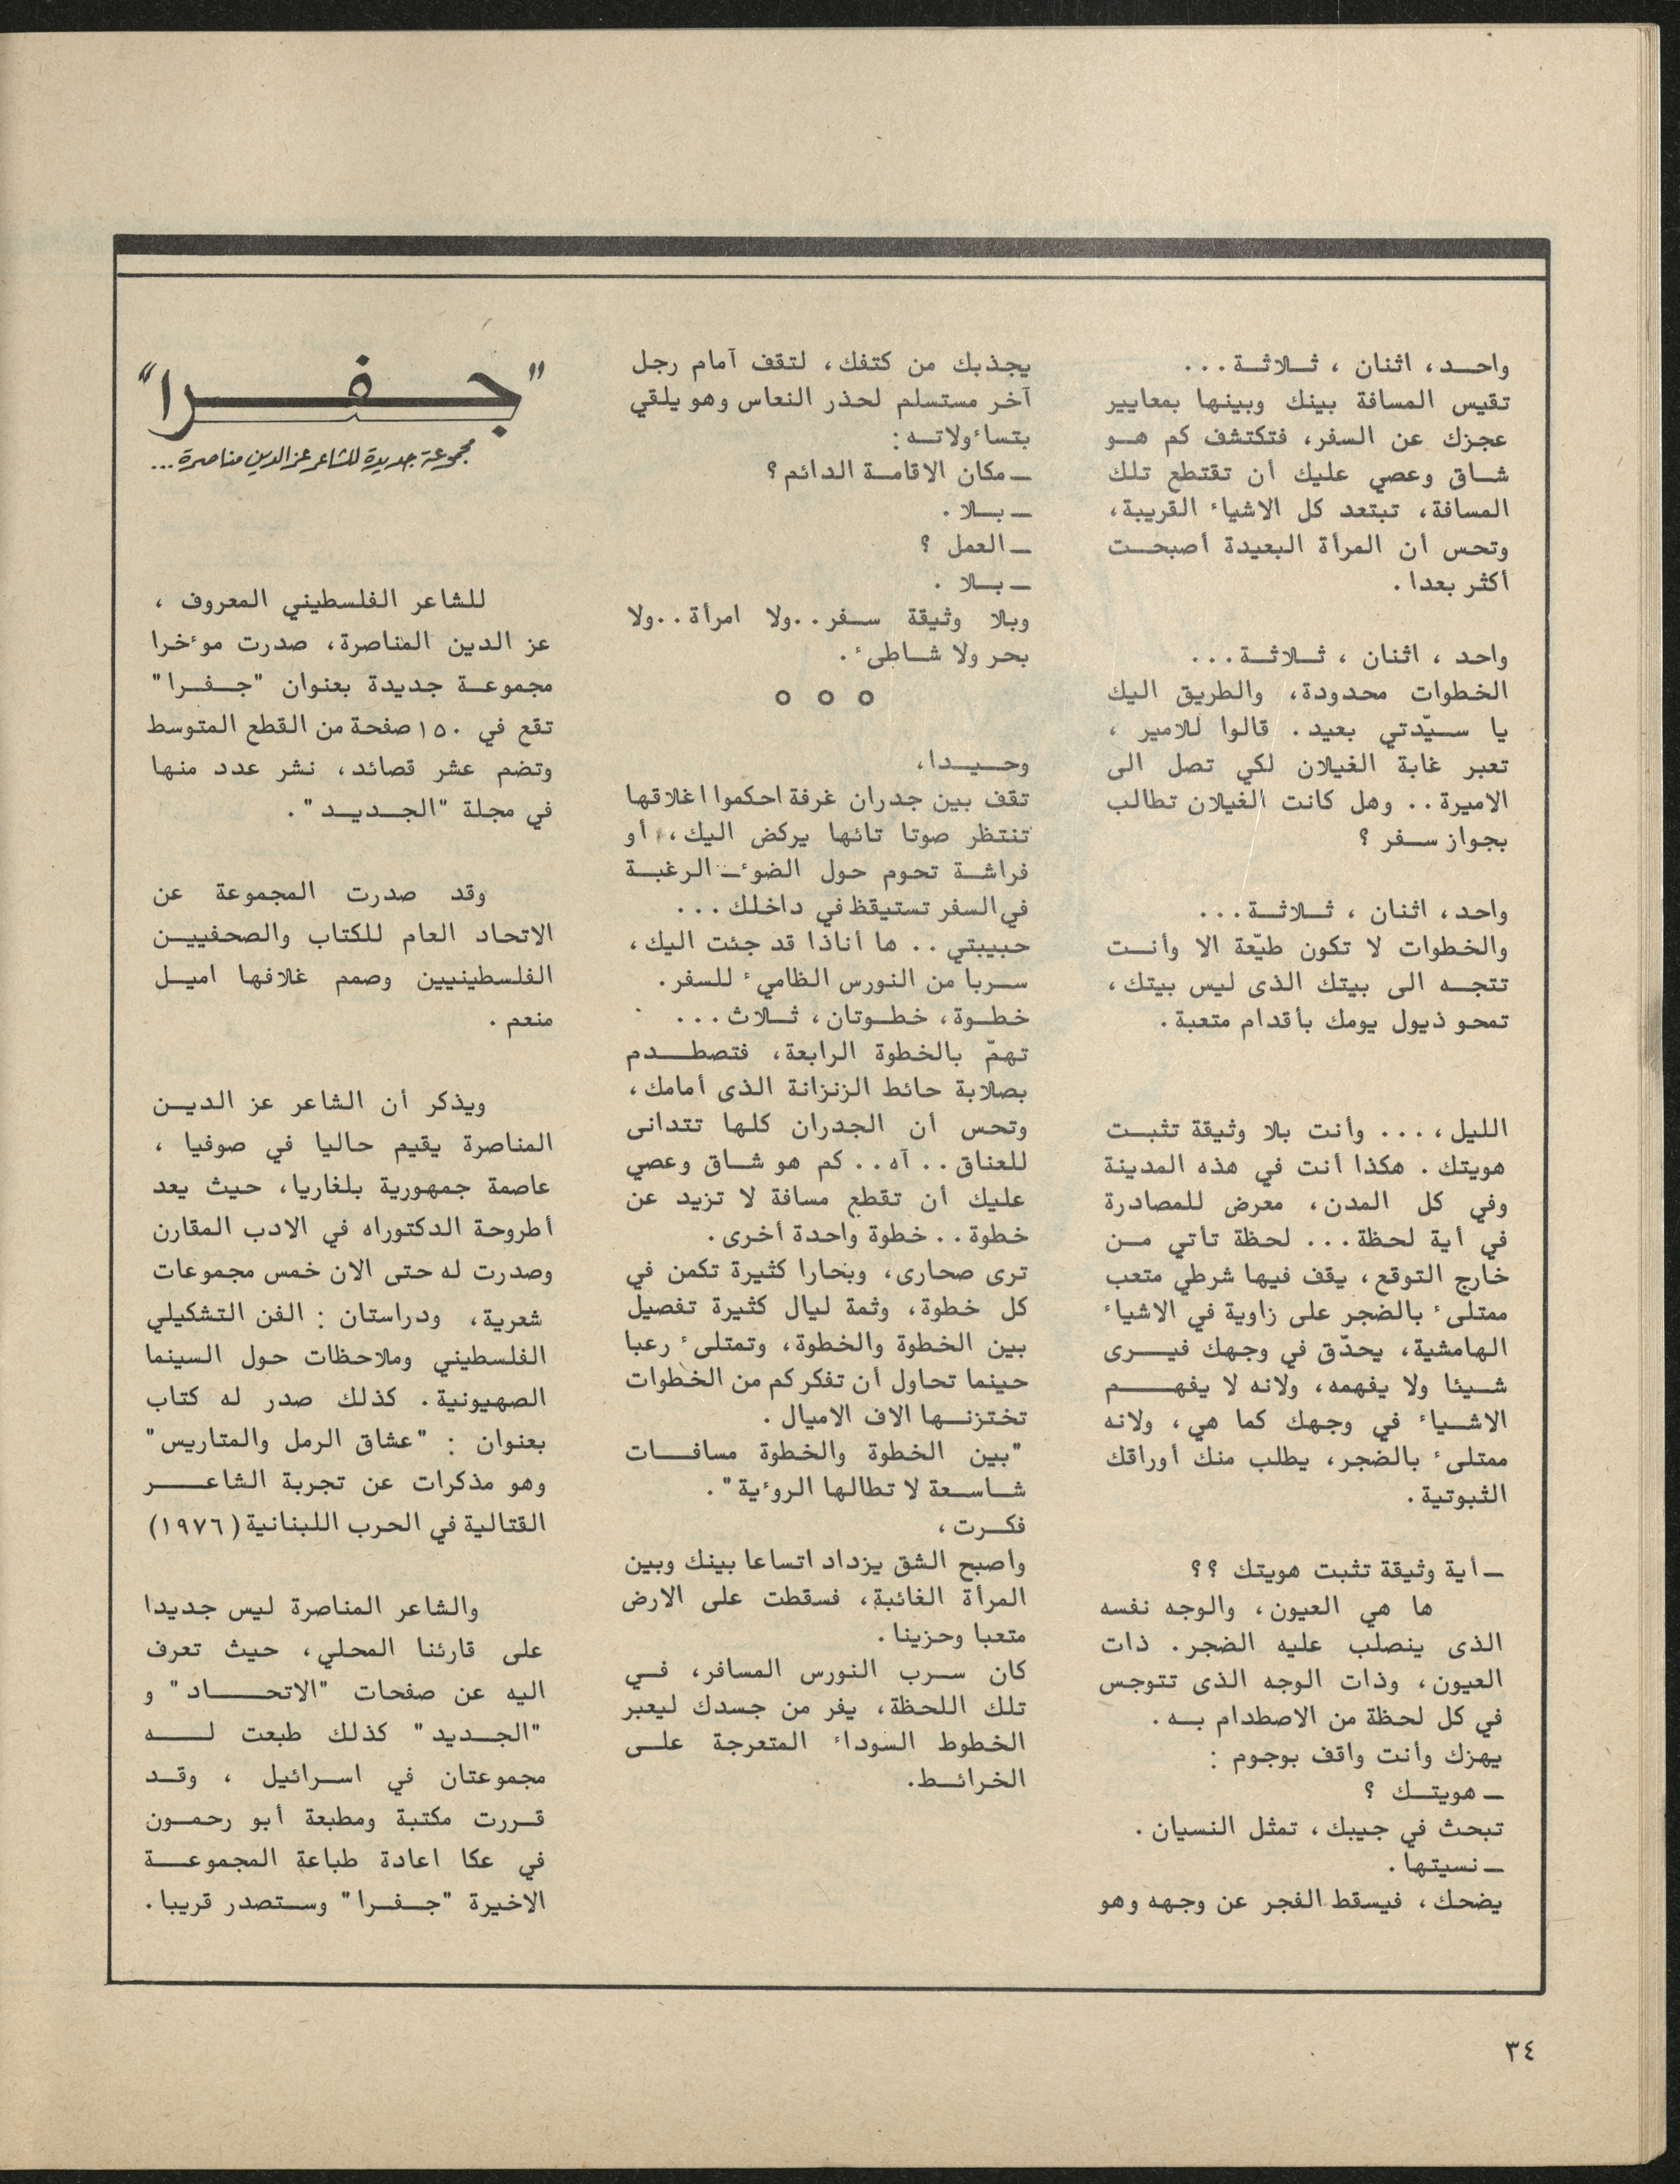 واحد، اثنان ، ثلاثة...
تقيس المسافة بينك وبينها بمعايير
عجزك عن السفر، فتكتشف كم هو
شاق وعصي عليك أن تقتطع تلك
المسافة، تبتعد كل الاشياء القريبة،
وتحس أن المرأة البعيدة أصبحت
أكثر بعدا.
واحد ، اثنان ، ثلاثة...
الخطوات محدودة، والطريق اليك
يا سيّدتي بعيد. قالوا للامير ،
تعبر غابة الغيلان لكي تصل الى
الاميرة.. وهل كانت الغيلان تطالب
بجواز سفر ؟
واحد، اثنان ، ثلاثة...
والخطوات لا تكون طيّعة الا وأنت
تتجه الى بيتك الذى ليس بيتك،
تمحو ذيول يومك بأقدام متعبة.
الليل،... وأنت بلا وثيقة تثبت
هويتك. هكذا أنت في هذه المدينة
وفي كل المدن، معرض للمصادرة
في أية لحظة... لحظة تأتي من
خارج التوقع، يقف فيها شرطي متعب
ممتلىء بالضجر على زاوية في الاشياء
الهامشية، يحدّق في وجهك فيرى
شيئا ولا يفهمه، ولانه لا يفهم
الاشياء في وجهك كما هي، ولانه
ممتلىء بالضجر، يطلب منك أوراقك
الثبوتية.
ـ أية وثيقة تثبت هويتك ؟؟
ها هي العيون، والوجه نفسه
الذى ينصلب عليه الضجر. ذات
العيون، وذات الوجه الذى تتوجس
في كل لحظة من الاصطدام به.
يهزك وأنت واقف بوجوم :
ـ هويتك ؟
تبحث في جيبك، تمثل النسيان.
ـ نسيتها.
يضحك، فيسقط الفجر عن وجهه وهو
يجذبك من كتفك، لتقف آمام رجل
آخر مستسلم لحذر النعاس وهو يلقي
بتساءولاته :
ـ مكان الاقامة الدائم؟
ـ بلا.
ـ العمل ؟
ـ بلا .
وبلا وثيقة سفر..ولا امرأة..ولا
بحر ولا شاطىء.
o o o
وحيدا،
تقف بين جدران غرفة احكموا اغلاقها
تنتظر صوتا تائها يركض اليك، أو
فراشة تحوم حول الضوء ـ الرغبة
في السفر تستيقظ في داخلك...
حبيبتي.. ها أناذا قد جئت اليك،
سربا من النورس الظامىء للسفر.
خطوة، خطوتان، ثلاث...
تهمّ بالخطوة الرابعة، فتصطدم
بصلابة حائط الزنزانة الذى أمامك،
وتحس أن الجدران كلها تتدانى
للعناق.. آه.. كم هو شاق وعصي
عليك أن تقطع مسافة لا تزيد عن
خطوة.. خطوة واحدة أخرى.
ترى صحارى، وبحارا كثيرة تكمن في
كل خطوة، وثمة ليال كثيرة تفصيل
بين الخطوة والخطوة، وتمتلىء رعبا
حينما تحاول أن تفكر كم من الخطوات
تختزنها الاف الاميال.
"بين الخطوة والخطوة مسافات
شاسعة لا تطالها الروءية".
فكرت،
وأصبح الشق يزداد اتساعا بينك وبين
المرأة الغائبة، فسقطت على الارض
متعبا وحزينا.
كان سرب النورس المسافر، في
تلك اللحظة، يفر من جسدك ليعبر
الخطوط السوداء المتعرجة على
الخرائط.
"جفرا"
مجموعة جديدة للشاعر عز الدين مناصرة...
للشاعر الفلسطيني المعروف ،
عز الدين المناصرة، صدرت موءخرا
مجموعة جديدة بعنوان "جفرا"
تقع في ١٥٠ صفحة من القطع المتوسط
وتضم عشر قصائد، نشر عدد منها
في مجلة "الجديد".
وقد صدرت المجموعة عن
الاتحاد العام للكتاب والصحفيين
الفلسطينيين وصمم غلافها اميل
منعم.
ويذكر أن الشاعر عز الدين
المناصرة يقيم حاليا في صوفيا ،
عاصمة جمهورية بلغاريا، حيث يعد
أطروحة الدكتوراه في الادب المقارن
وصدرت له حتى الان خمس مجموعات
شعرية، ودراستان : الفن التشكيلي
الفلسطيني وملاحظات حول السينما
الصهيونية. كذلك صدر له كتاب
بعنوان : "عشاق الرمل والمتاريس"
وهو مذكرات عن تجربة الشاعر
القتالية في الحرب اللبنانية (١٩٧٦)
والشاعر المناصرة ليس جديدا
على قارئنا المحلي، حيث تعرف
اليه عن صفحات "الاتحاد" و
"الجديد" كذلك طبعت له
مجموعتان في اسرائيل ، وقد
قررت مكتبة ومطبعة أبو رحمون
في عكا اعادة طباعة المجموعة
الاخيرة "جفرا" وستصدر قريبا.
٣٤